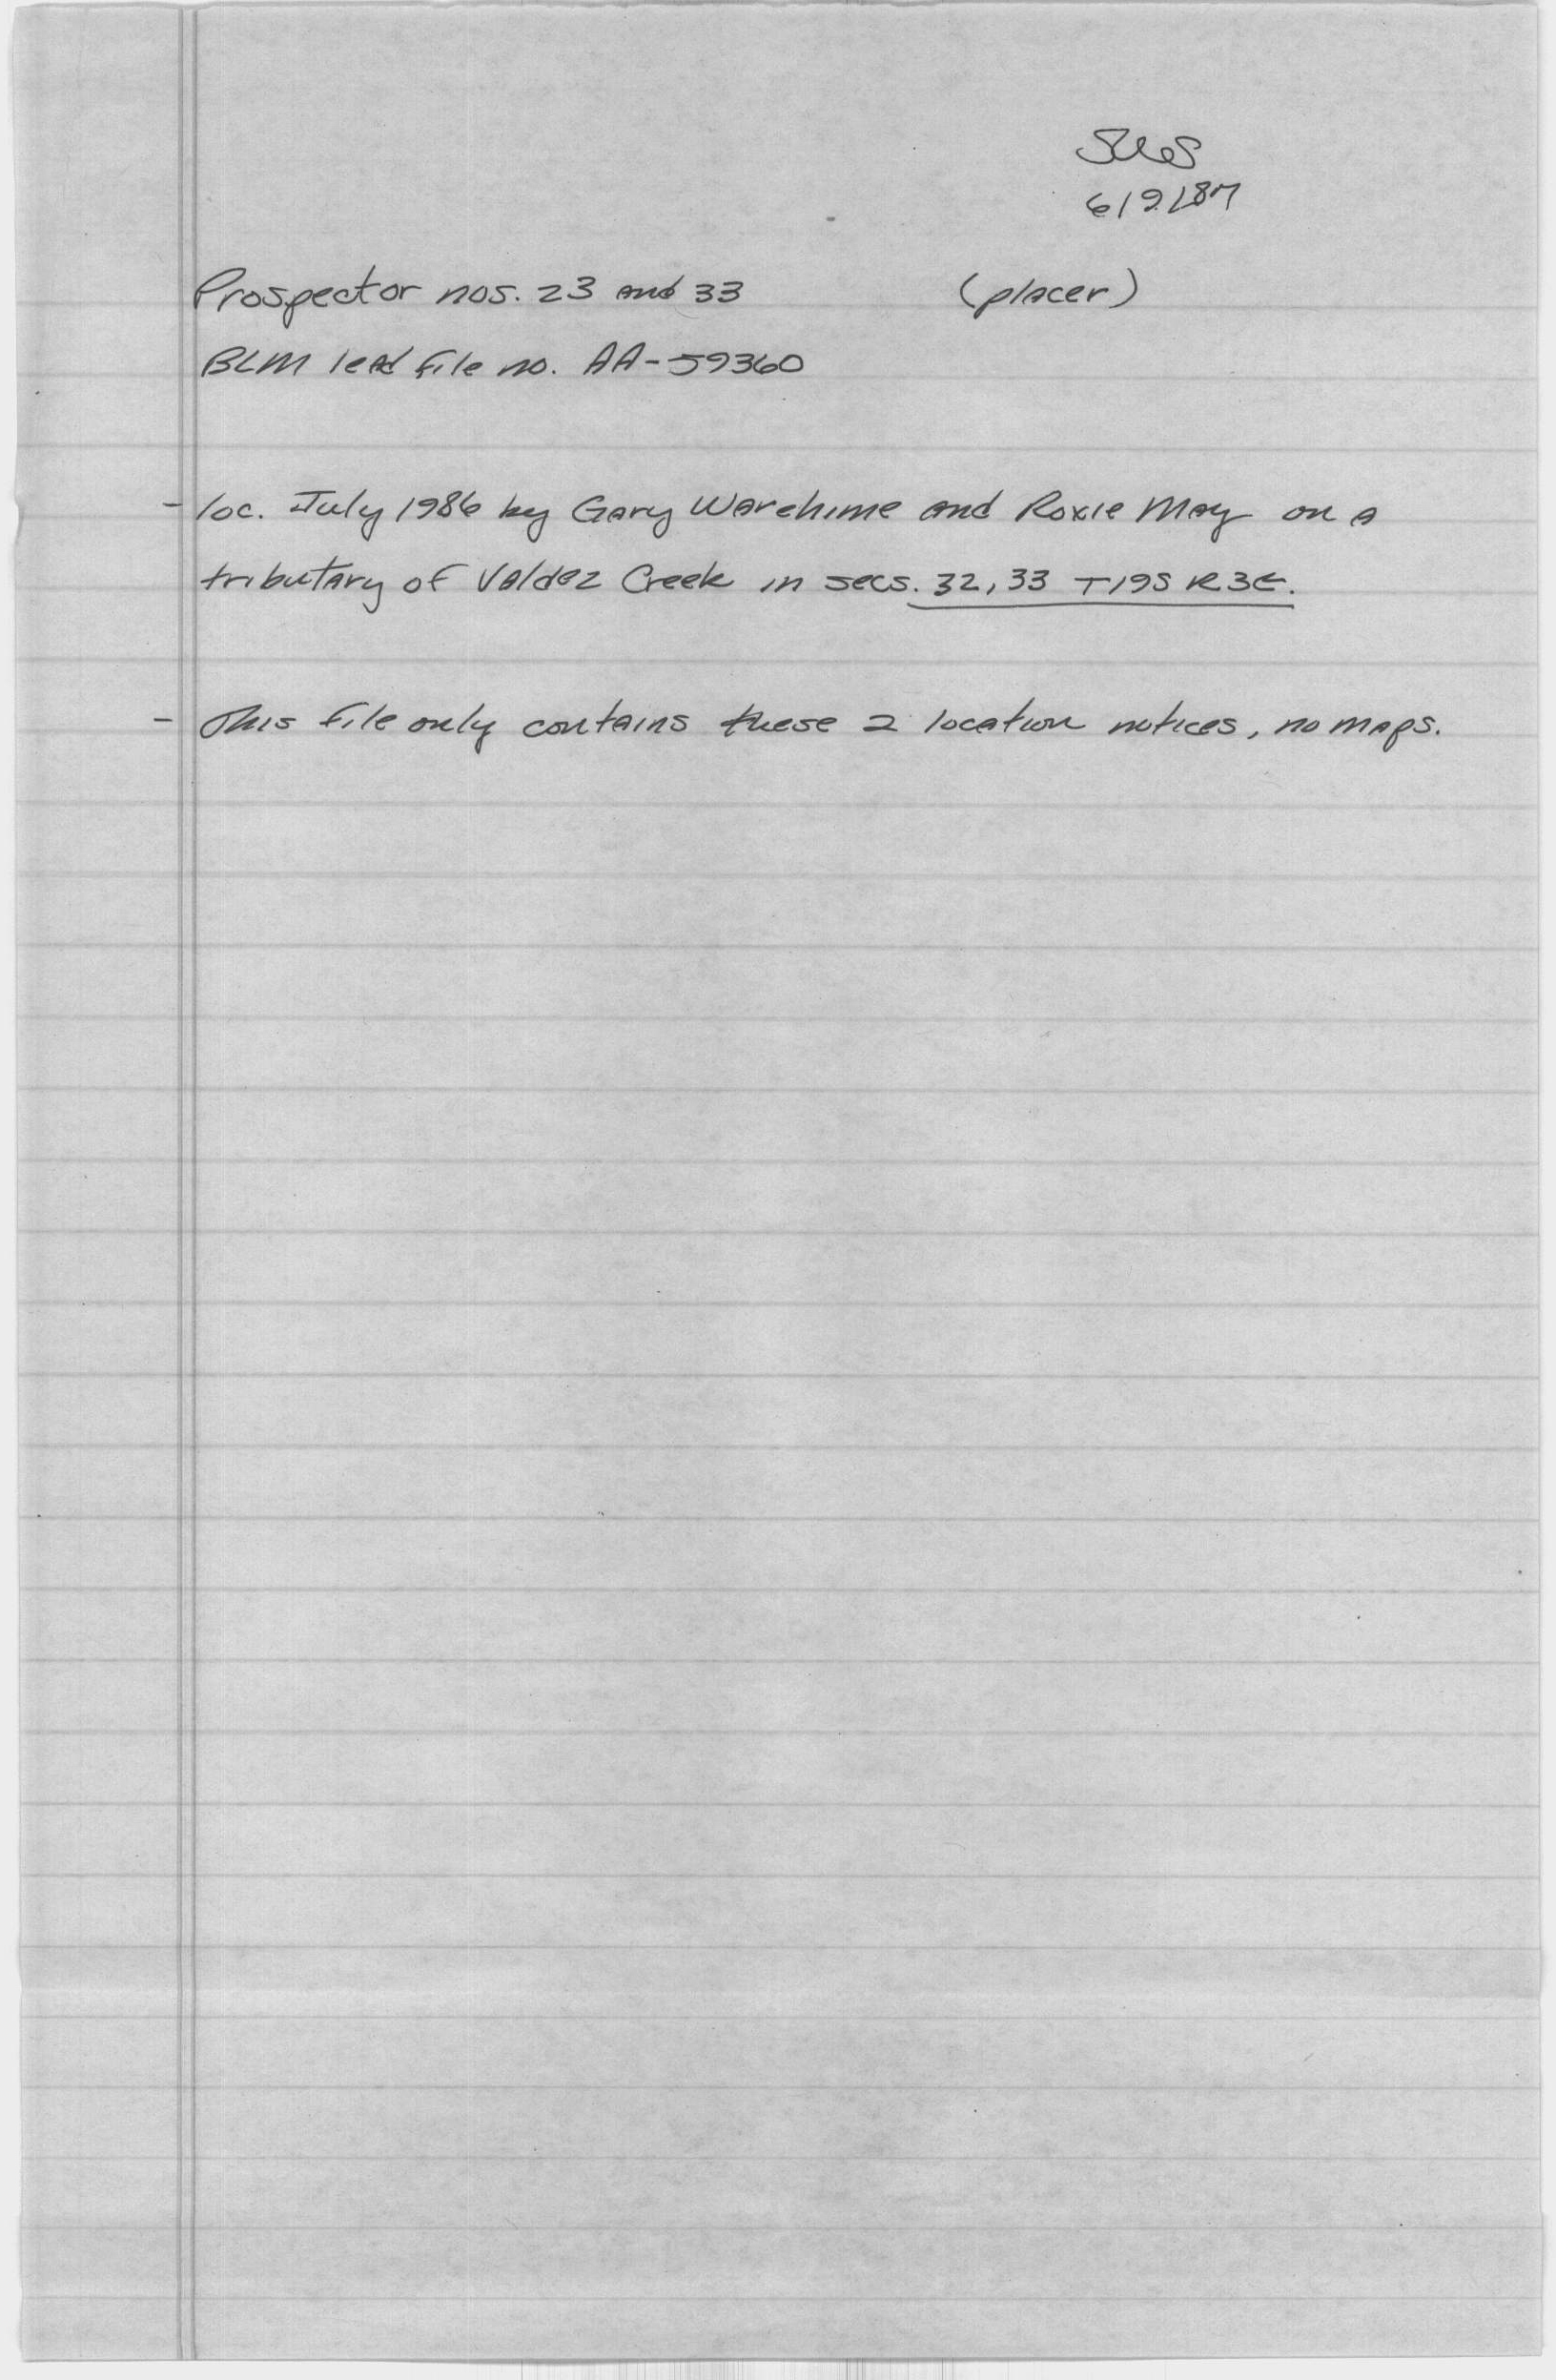 6/9/87
Prospector nos. 23 and 33 (placer)
BLM lead file no. AA-59360
- loc. July 1986 by Gary Warehime and Roxie May on a
tributary of Valdez Creek in secs. 32, 33 T19S R3E.
- This file only contains these 2 location notices, no maps.